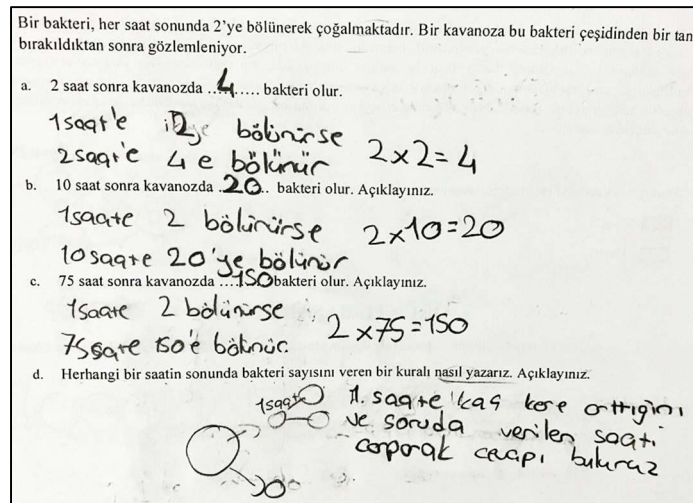 Bir bakteri, her saat sonunda 2'ye bölünerek çoğalmaktadır. Bir kavanoza bu bakteri çeşidinden bir tan
bırakıldıktan sonra gözlemleniyor.
a. 2 saat sonra kavanozda ..4..... bakteri olur.
1 saat'e 2ye bölünirse
2 saat'e 4 e bölünür 2x2=4
b. 10 saat sonra kavanozda .20.. bakteri olur. Açıklayınız.
1 saate 2 bölünürse 2x10=20
10 saate 20'ye bölünür
c. 75 saat sonra kavanozda ....150 bakteri olur. Açıklayınız.
1 saate 2 bölünürse 2x75=150
75 sate 150'e bölünür.
d. Herhangi bir saatin sonunda bakteri sayısını veren bir kuralı nasıl yazarız. Açıklayınız.
1 saate
1. saate kaç kere arttıgını
ve soruda verilen saati
çarparak cevapı buluruz